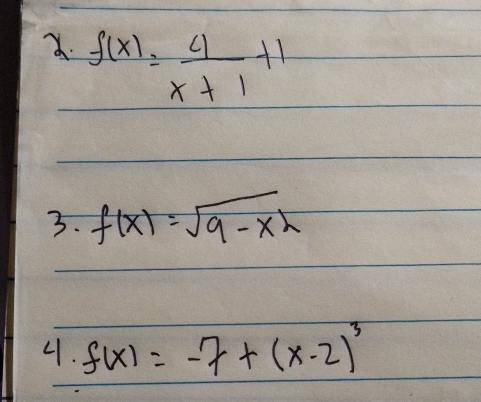 2. f(x) = 4/(x + 1) + 1
3. f(x) = √(9 - x2)
4. f(x) = -7 + (x-2)³